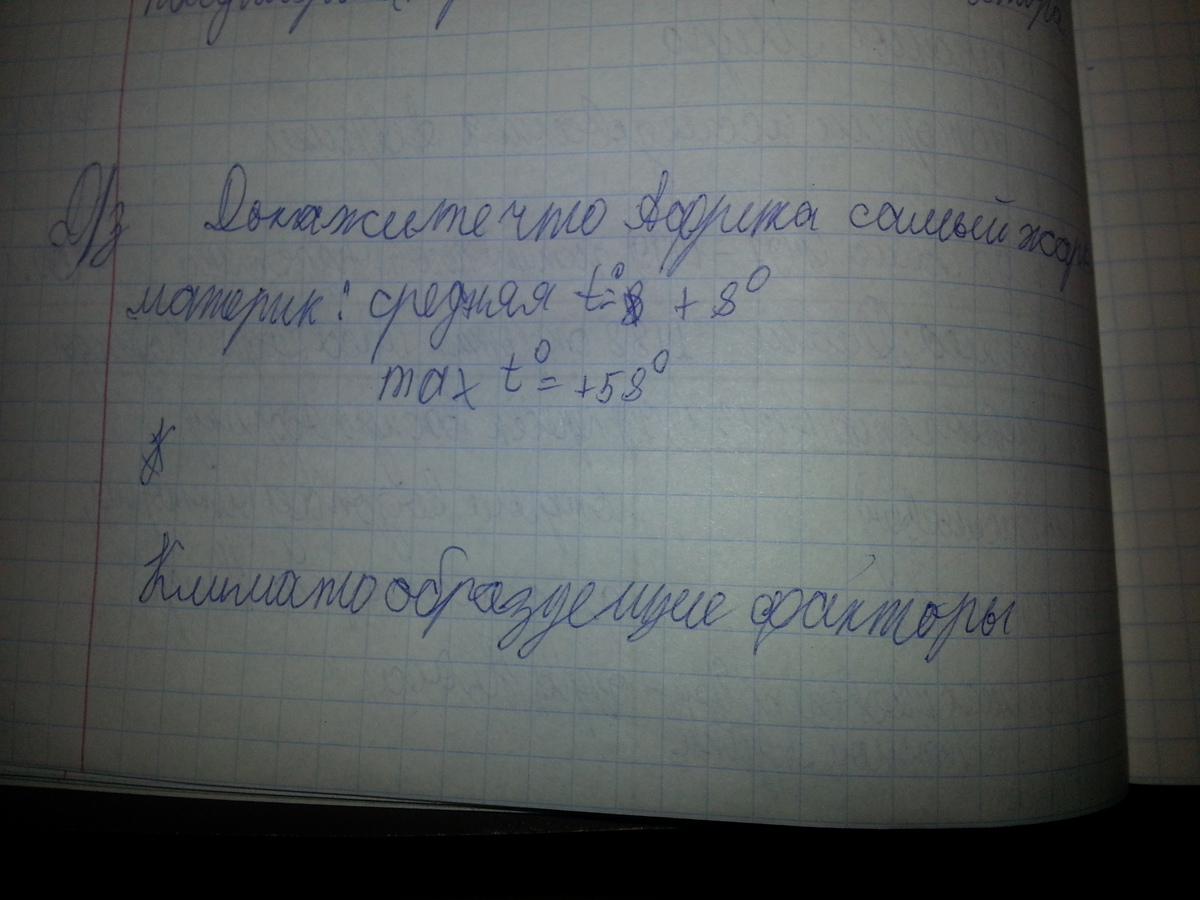 Д/з Докажите что Африка самый жар
материк: средняя t°= + 8°
max t°= +58°
Климатообразующие факторы